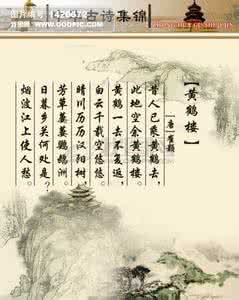 古诗集锦
【黄鹤楼】
[唐]崔颢
昔人已乘黄鹤去,
此地空余黄鹤楼。
黄鹤一去不复返,
白云千载空悠悠。
晴川历历汉阳树,
芳草萋萋鹦鹉洲。
日暮乡关何处是?
烟波江上使人愁。